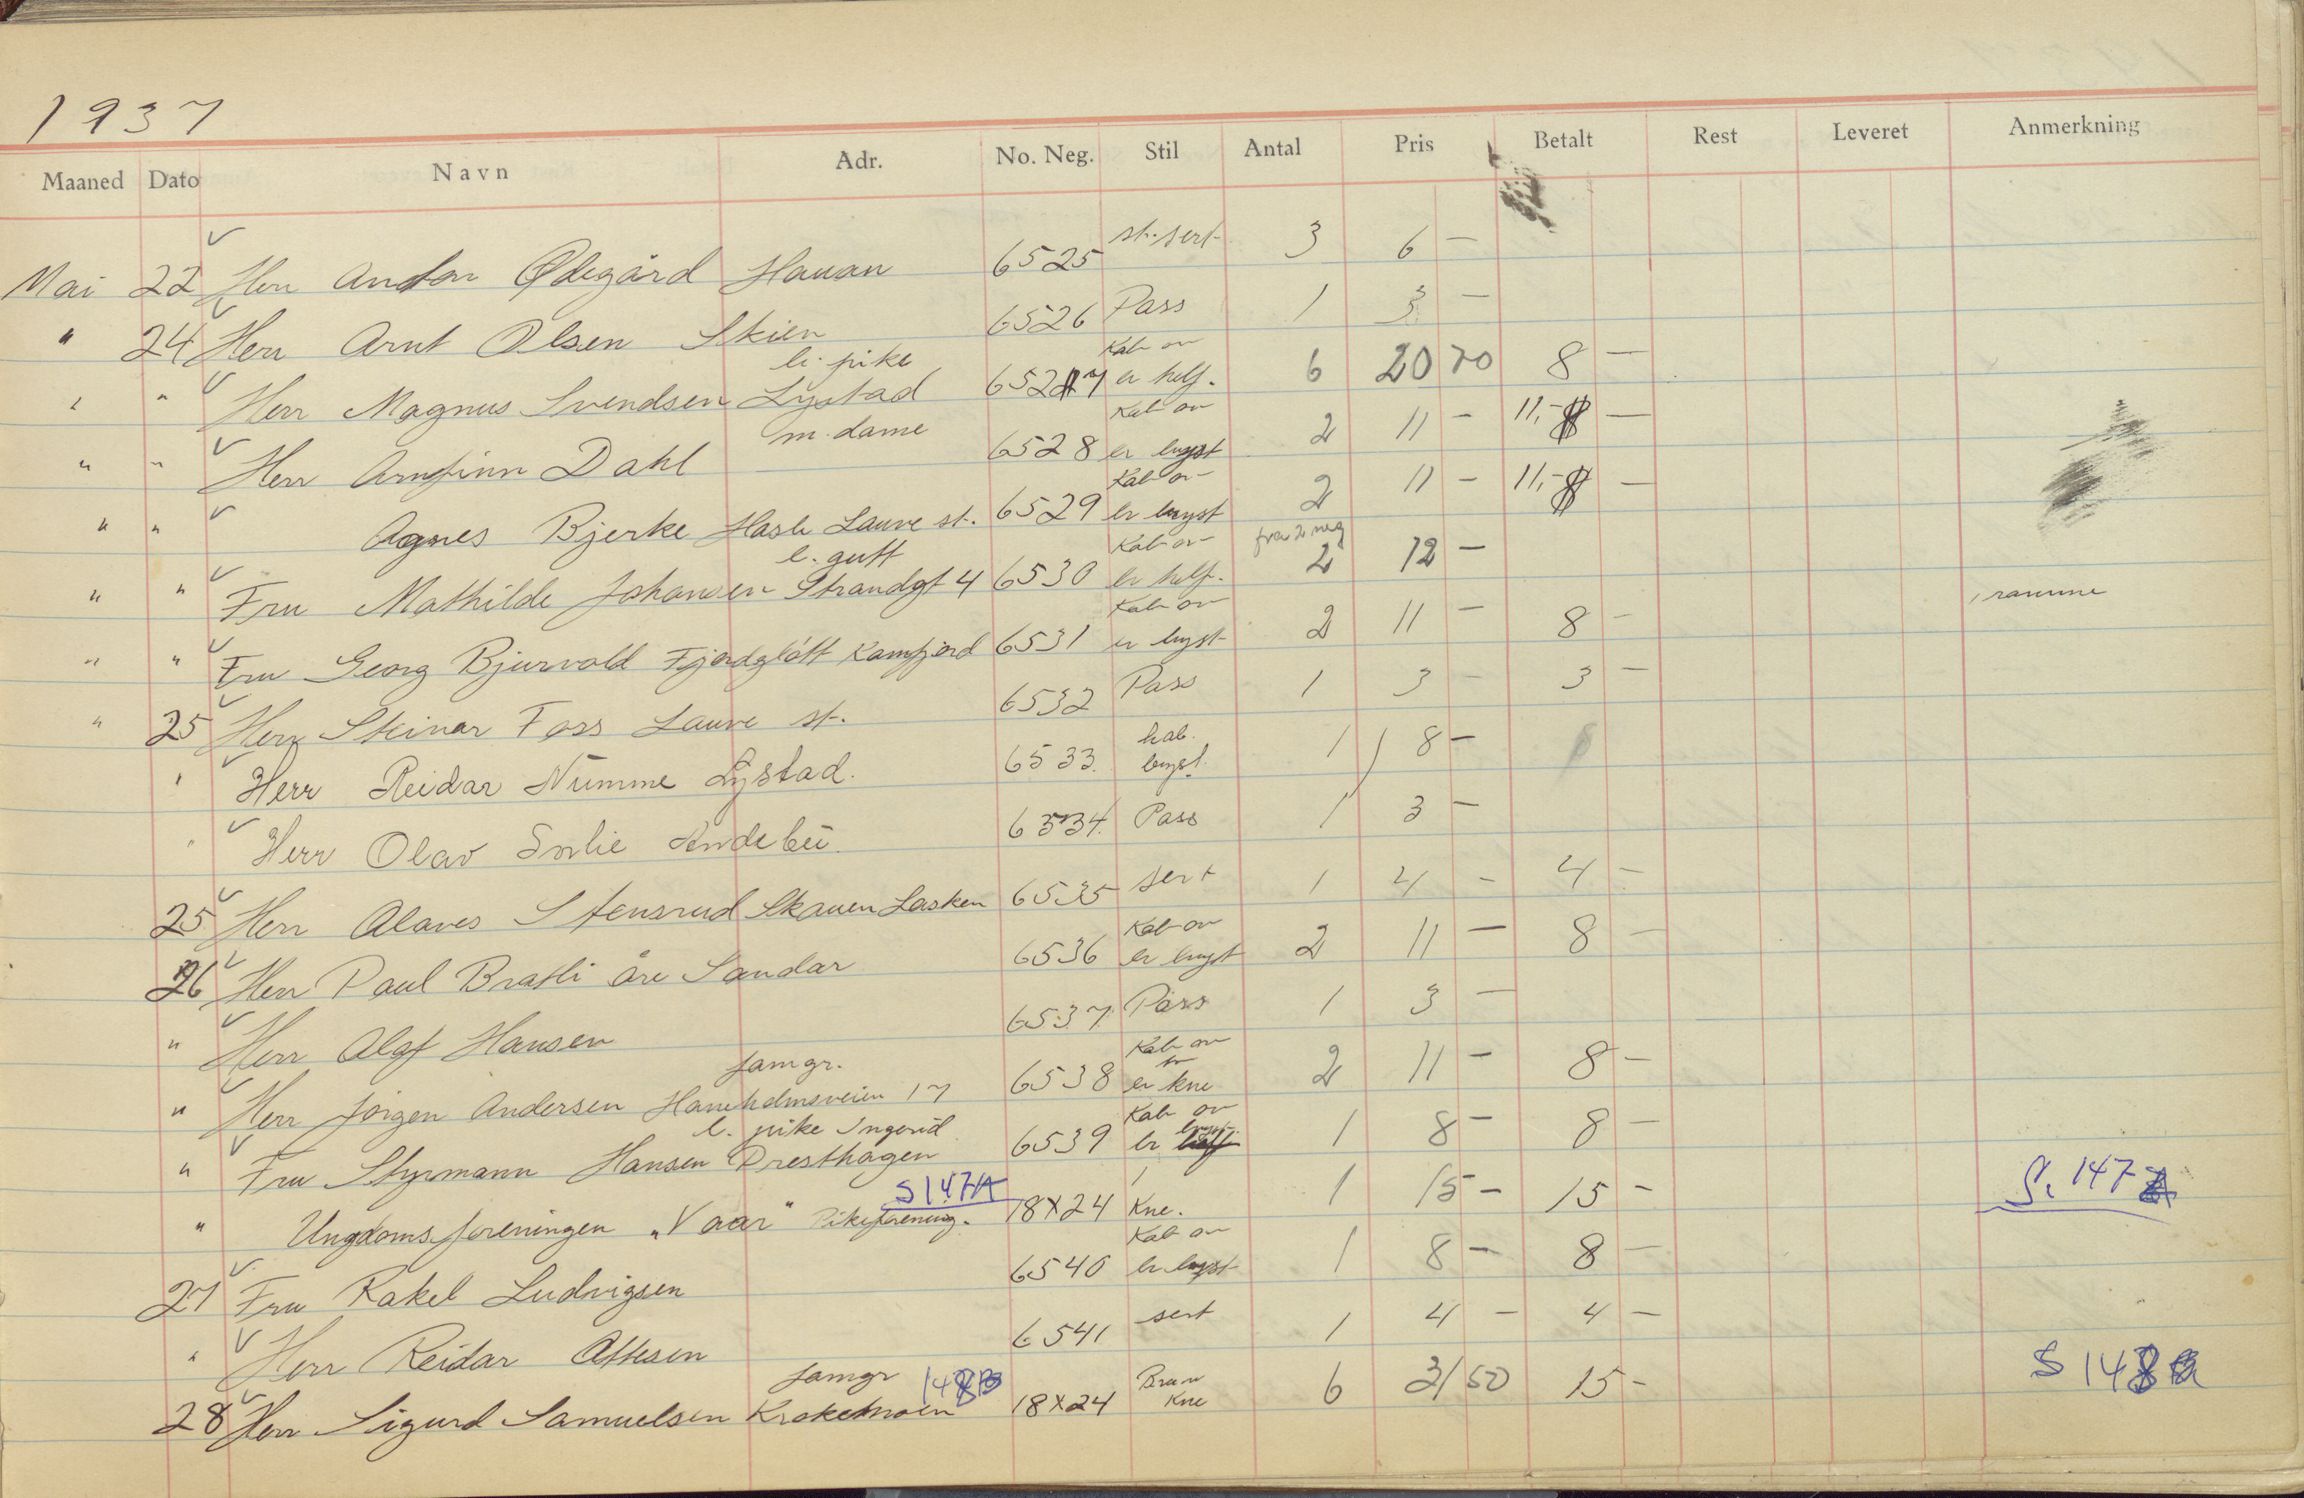 1937
Maaned Dato Navn Adr. No. Neg. Stil Antal Pris Betalt Rest Leveret Anmerkning
st. sert
Mai 22 Herr Anton Ødegård Hauan 6525 3 6 —
" 24 Herr Arnt Olsen Skien 6526 Pass 1 3 —
li. pike Kab on
" " Herr Magnus Svendsen Lystad 6527 er helf. 6 20 70 8 —
m. dame Kab on
" " Herr Arnfinn Dahl 6528 er byst 2 11 — 11,- —
Kab on
" " Agnes Bjerke Hasle Lauve st. 6529 er byst 2 11 — 11,- —
l. gutt Kab on fra 2 neg
" " Fru Mathilde Johansen Strandgt 4 6530 er helf. 2 12 —
Kab on 1 ramme
" " Fru Georg Bjurvold Fjordgløtt Kamfjord 6531 er byst 2 11 — 8 —
" 25 Herr Steinar Foss Lauve st. 6532 Pass 1 3 — 3 —
kab.
" Herr Reidar Numme Lystad. 6533. byst. 1 8 —
" Herr Olav Solie Andebu. 6534. Pass 1 3 —
25 Herr Alaves Stensrud Skauen Lasken 6535 sert 1 4 — 4 —
Kab on
26 Herr Paul Bratli åre Sandar 6536 er byst 2 11 — 8 —
" Herr Olaf Hansen 6537 Pass 1 3 —
famgr. Kab on
" Herr Jörgen Andersen Haneholmsveien 17 6538 er kne 2 11 — 8 —
l. pike Ingerid Kab on
" Fru Styrmann Hansen Presthagen 6539 er byst 1 8 — 8 —
S 147A S. 147A
" Ungdomsforeningen „Vaar" Pikeforening. 18x24 Kne. 1 15 — 15 —
Kab on
27 Fru Rakel Ludvigsen 6540 er byst 1 8 — 8 —
" Herr Reidar Attesen 6541 sert 1 4 — 4 —
famgr 148B Brun S 148
28 Herr Sigurd Samuelsen Krokemoen 18x24 Kne 6 31 50 15 —